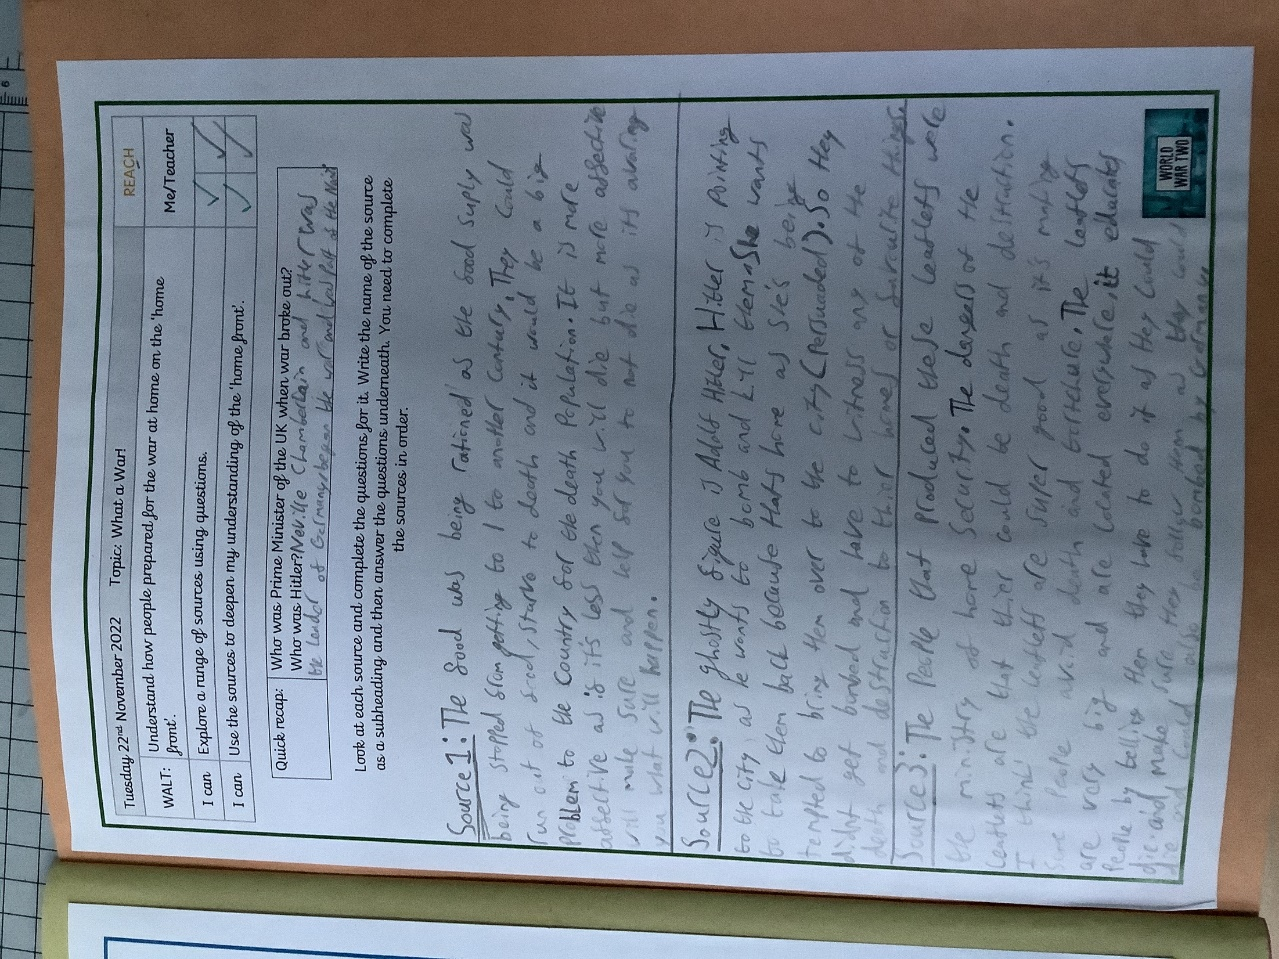 Tuesday 22nd November 2022 Topic: What a War! REACH
WALT: Understand how people prepared for the war at home on the 'home front'. Me/Teacher
I can Explore a range of sources using questions.
I can Use the sources to deepen my understanding of the 'home front'.
Quick recap: Who was Prime Minister of the UK when war broke out?
Who was Hitler? Neville Chamberlain and hitler was
the leader of Germany/began the war and was part of the Nazi
Look at each source and complete the questions for it. Write the name of the source
as a subheading and then answer the questions underneath. You need to complete
the sources in order.
Source 1: The food was being rationed as the food suply was
being stopped from getting to 1 to another Contury, They Could
run out of food, starve to death and it would be a big
problem to the Country for the death Population. It is more
affective as if it's less then you will die but more affective
will make sure and help for you to not die as it's awaring
you what will happen.
Source 2: The ghostly figure is Adolf Hitler. Hitler is pointing
to the city as he wants to bomb and kill them. She wants
to take them back because thats home as she's being
tempted to bring them over to the city (Persuaded). So they
didnt get bombed and have to witness any of the
death and destruction to thier homes or favourite things.
Source 3: The People that produced these leaflets were
the ministry of home Security. The dangers of the
leatlets are that thier could be death and destruction.
I think the leatlets are super good as it's making
sure people avoid death and tortchure. The leatlets
are very big and are located everywhere, it educates
People by telling them they have to do it as they could
die and make sure they follow them as they could
die and could also be bombed by Germany.
WORLD
WAR TWO
6